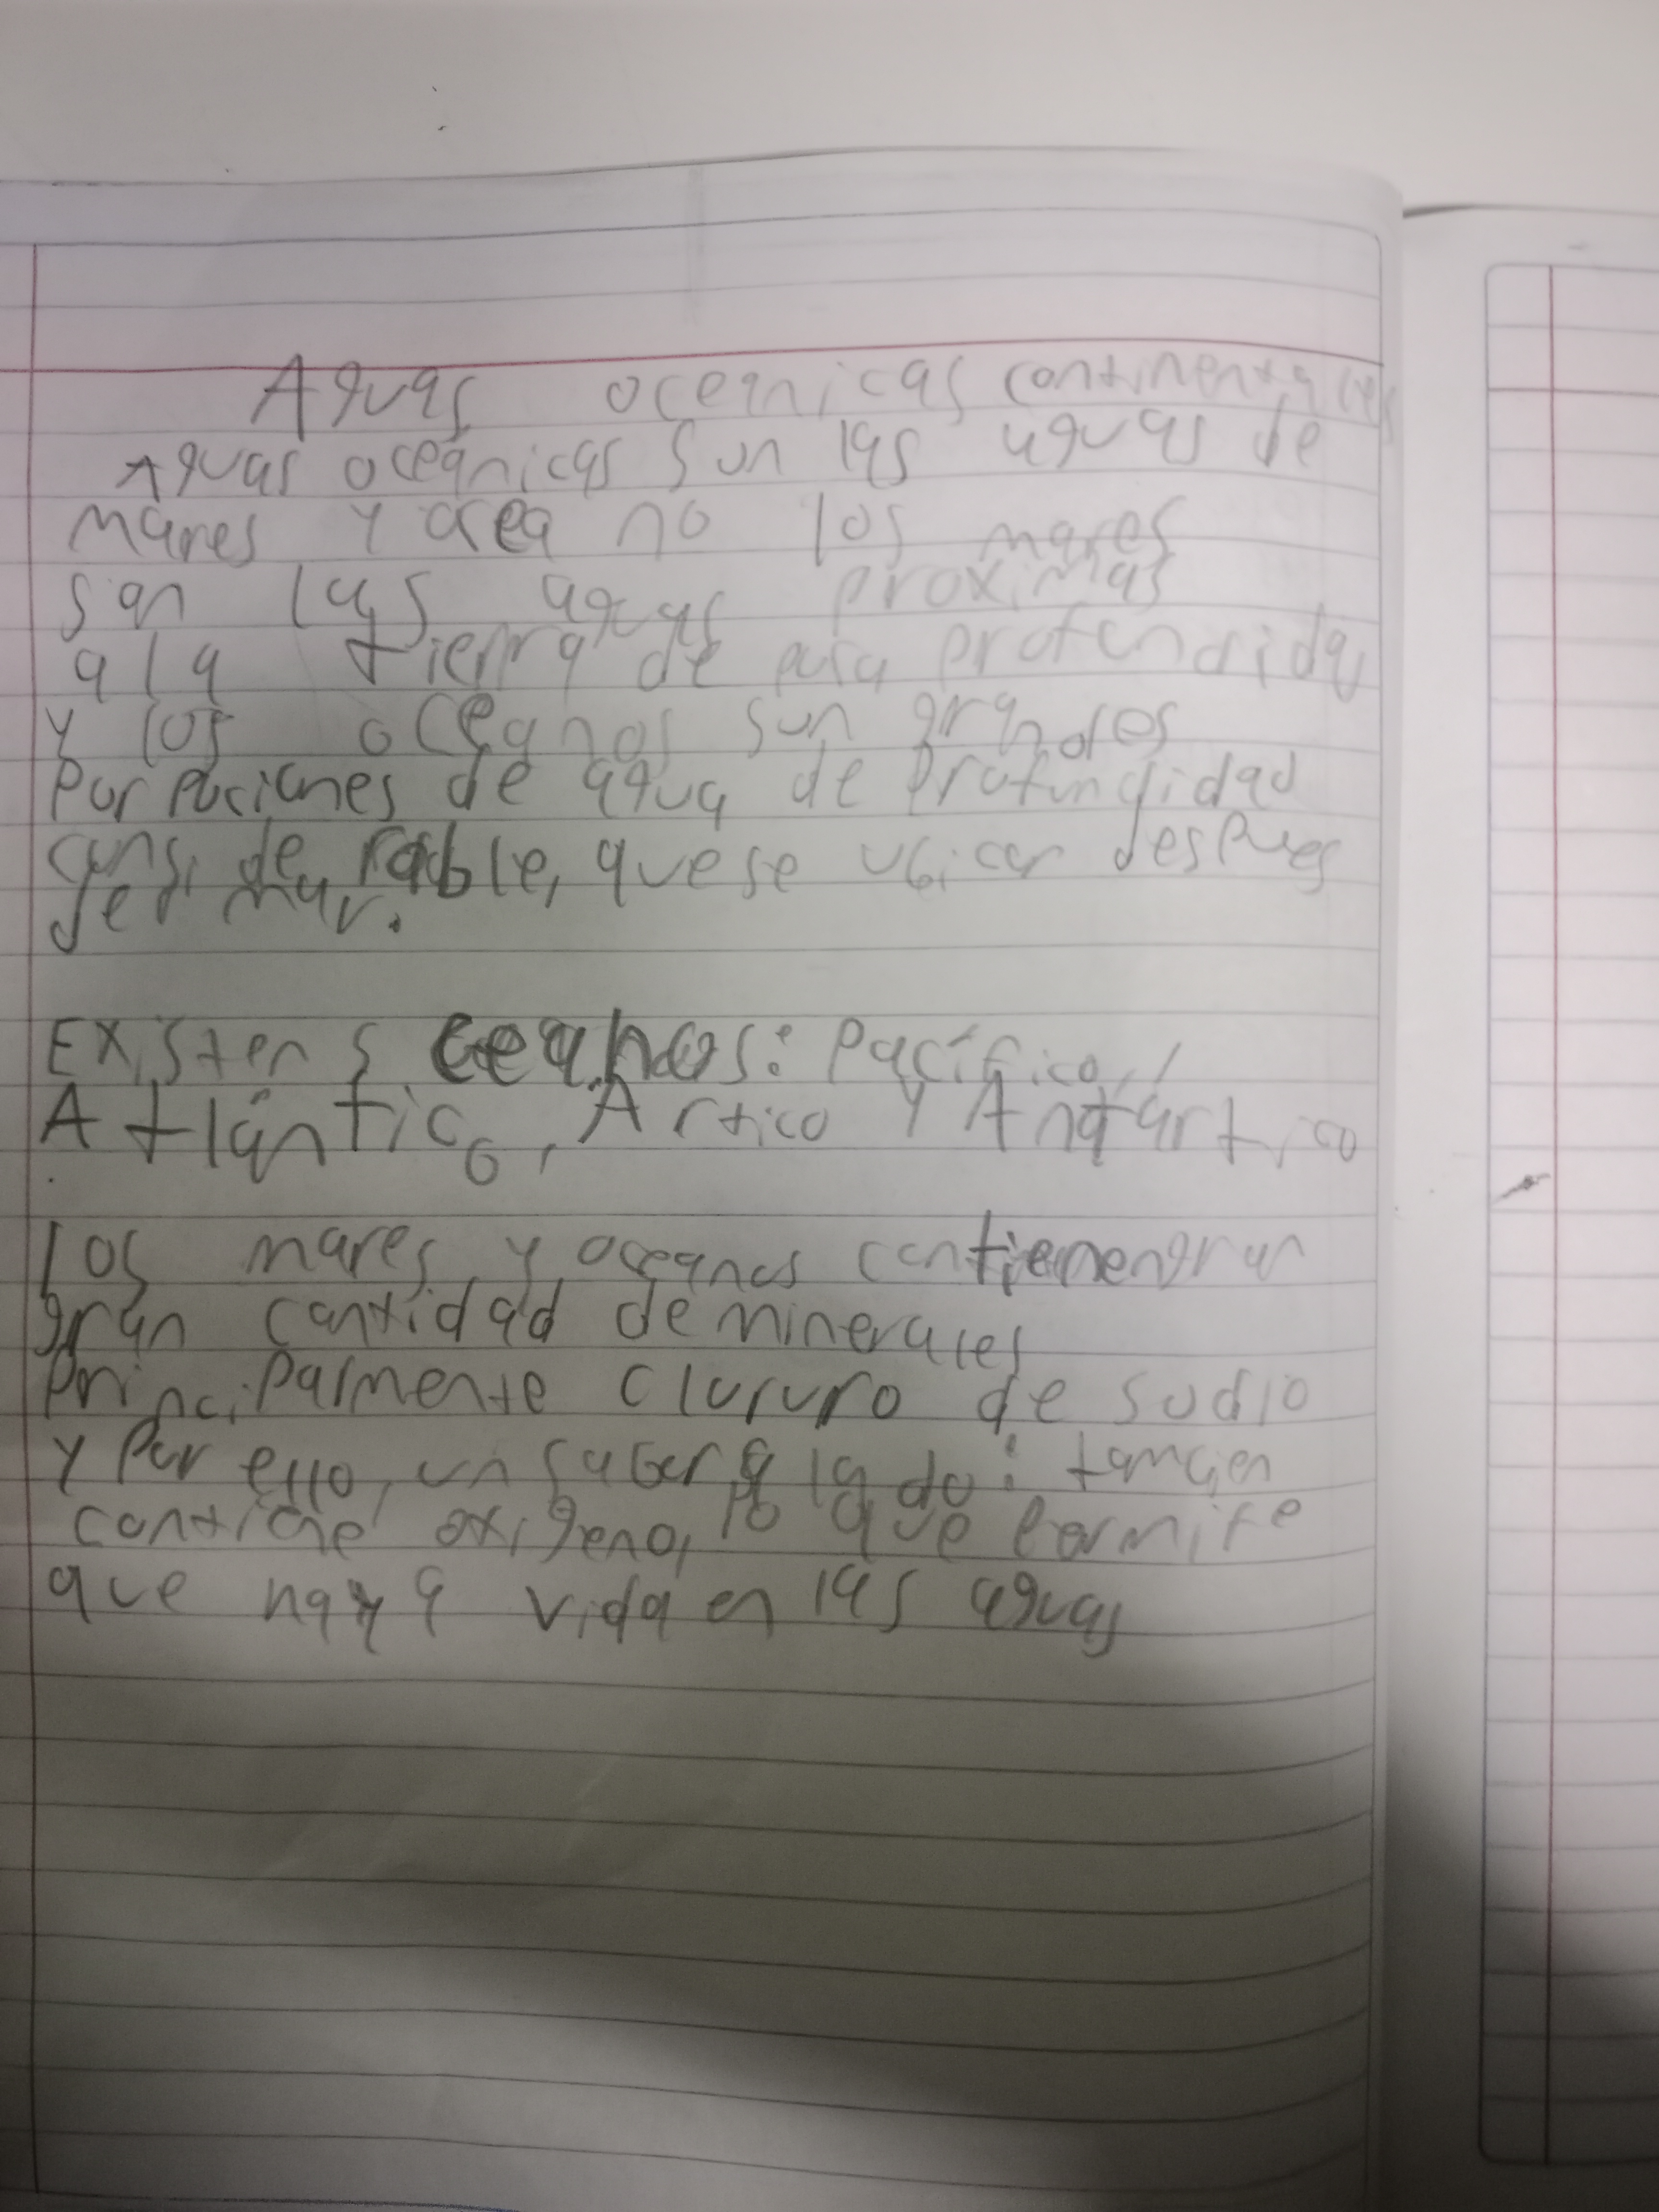 Aguas oceanicas continentales
Aguas oceanicas son las aguas de
mares y ocea no los mares
son las aguas proximas
a la tierra de poca profundida
y los oceanos son grandes
Porpociones de agua de Profundidad
consi de rable, que se ubican despues
del mar.
Existen 5 oceanos: Pacífico,
Atlántico, Artico y Anatartico
los mares y oceanos contienen gran
gran cantidad de minerales
principalmente cloruro de sodio
y Por ello, un sabor a lado: tamcien
contiene oxigeno, lo que Permite
que haya vida en las aguas